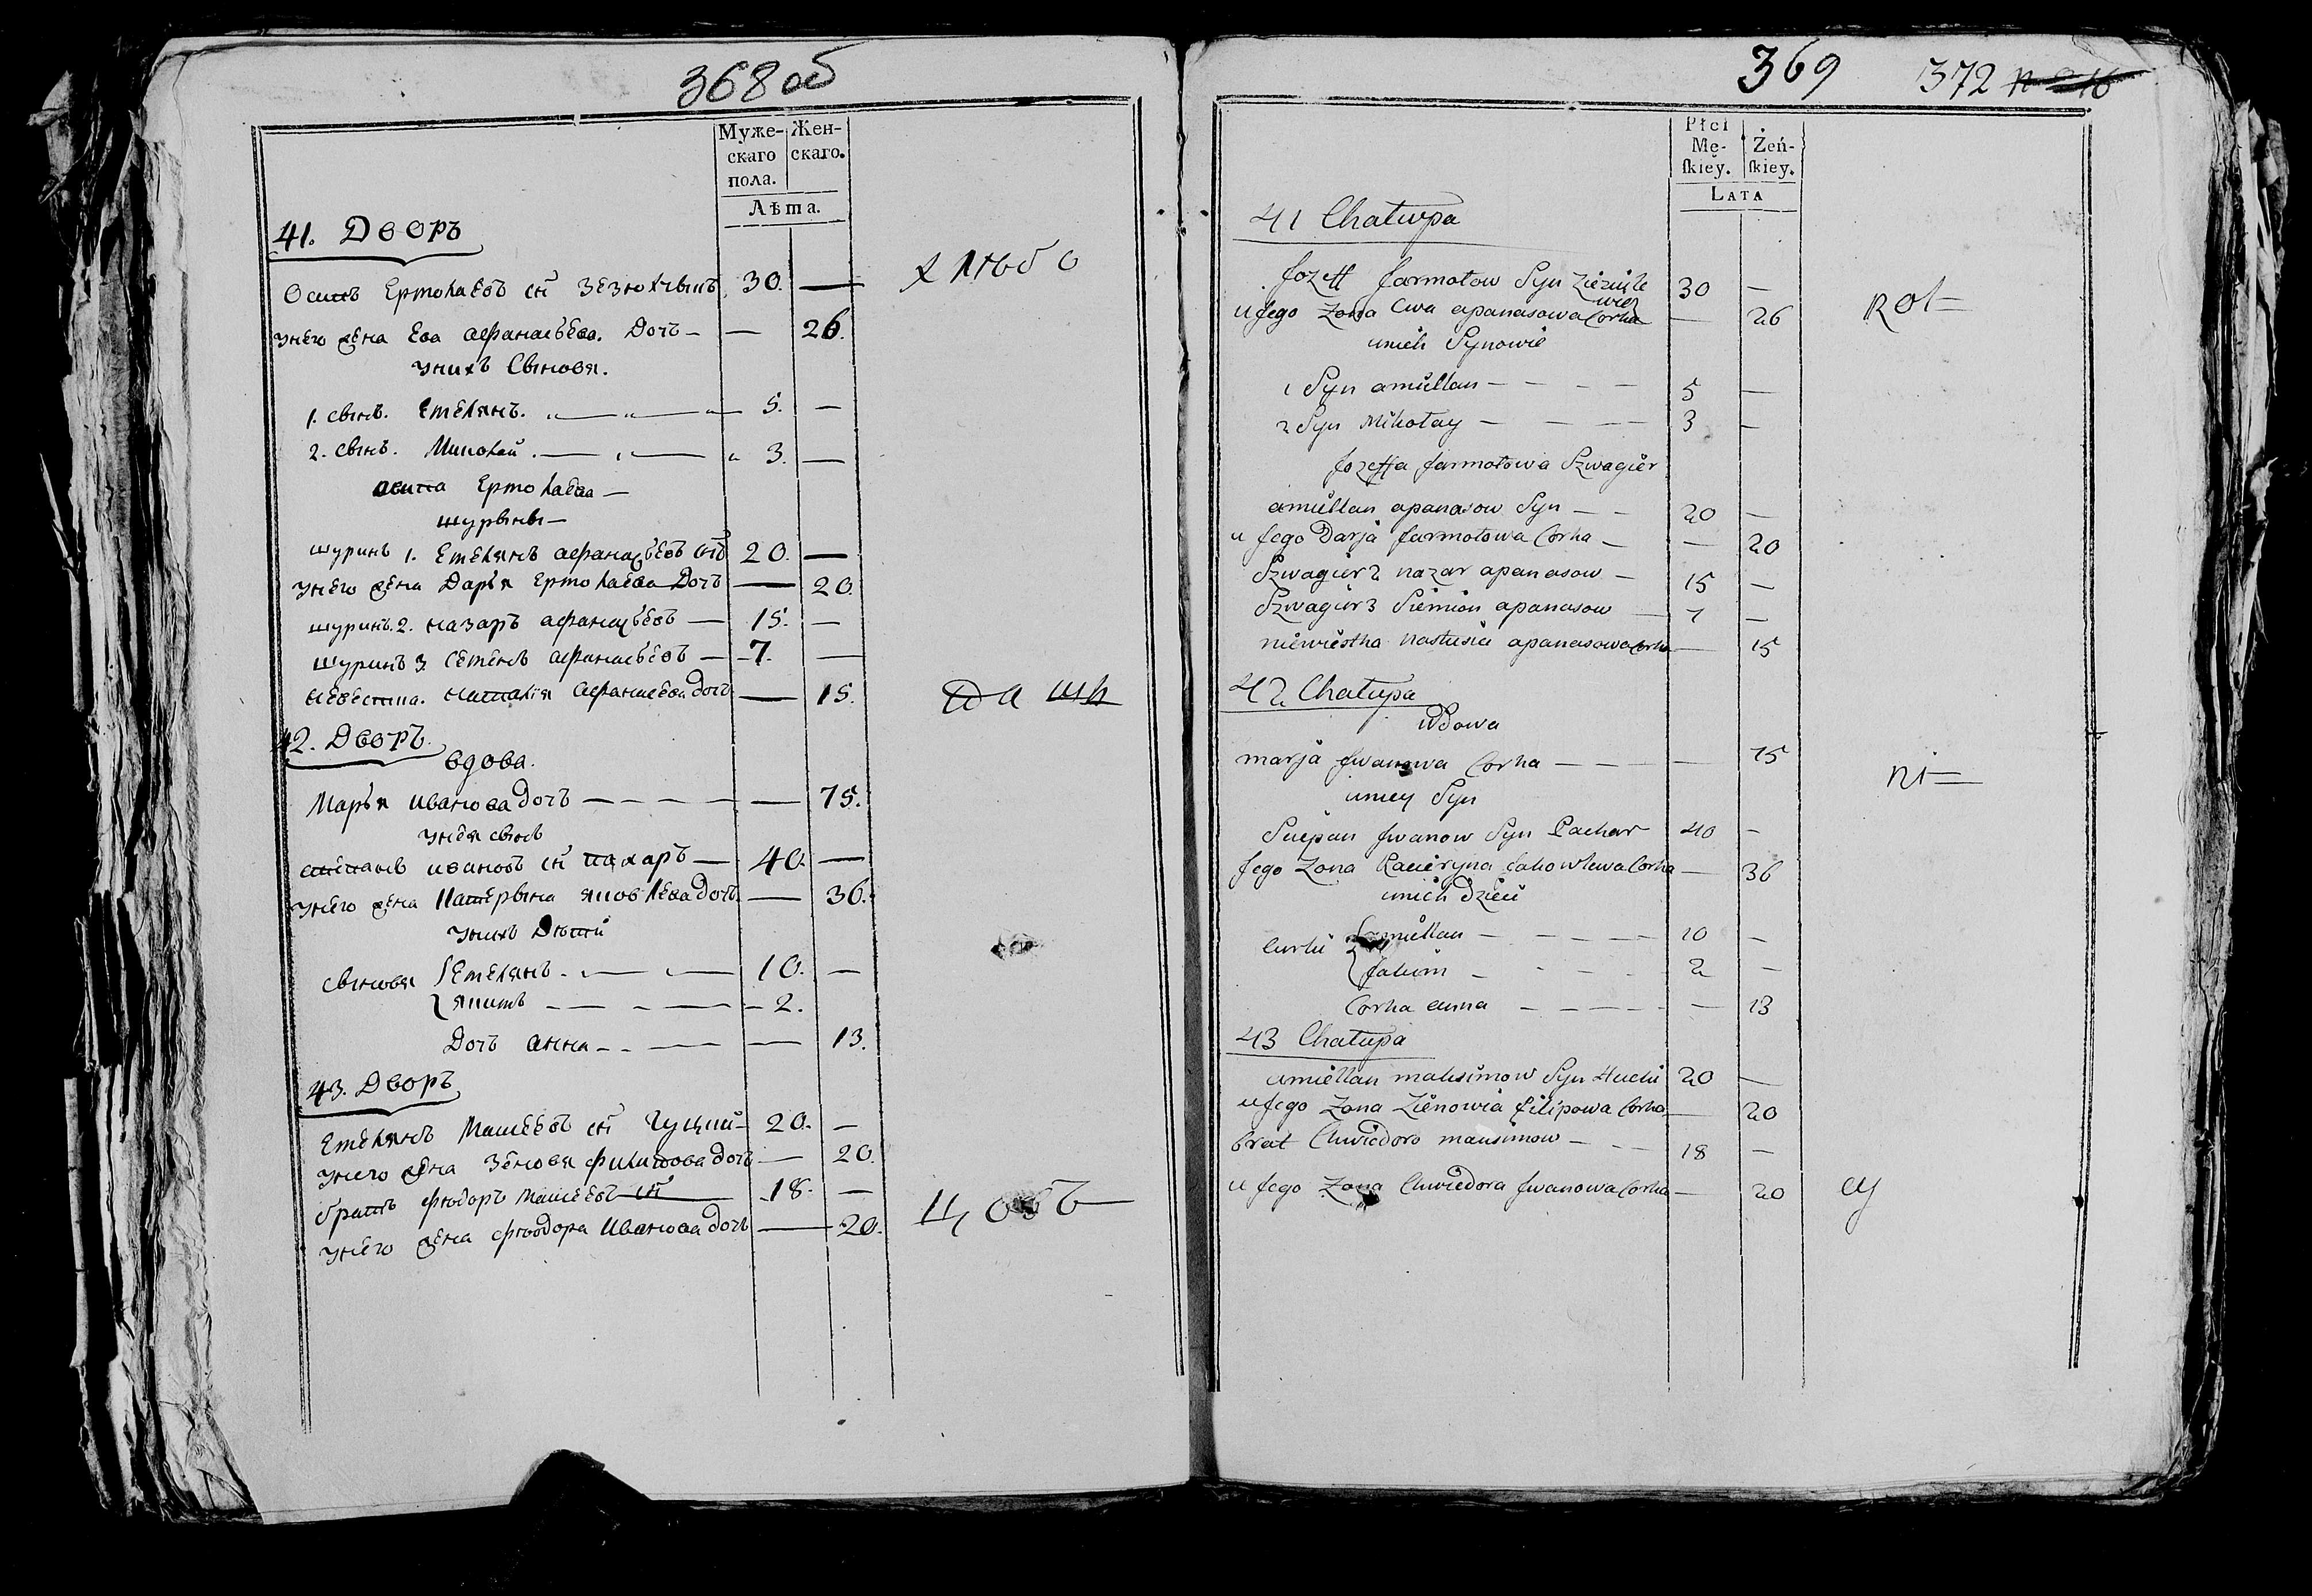 368 об
Муже- Жен-
скаго скаго.
пола.
Лѣта.
41. Дворъ
Осипъ Ермолаевъ сн 30. —
У него жена Ева Афанасьева. Дочь — — 26.
У нихъ Сыновя.
1. сынъ. Емелянъ. 5. —
2. сынъ. Миколай. 3. —
Осипа Ермолаева —
шурыны —
шуринъ 1. Емелянъ Афанасьевъ снъ 20. —
У него жена Даръя Ермолаева Дочь — 20.
шуринъ. 2. Назаръ Афанасьевъ — 15. —
шуринъ 3. Семенъ Афанасьевъ — 7. —
Невестка. Наталія Афанасьева дочь — 15.
42. Дворъ.
вдова.
Маръя Иванова дочь — — — — — 75.
У нея сынъ
Степанъ Ивановъ сн Пахаръ — 40. —
У него жена Катерына Яковлева дочь — 36.
У нихъ Дѣти
Сыновя Емелянъ. 10. —
Якимъ — — — — 2.
Дочь Анна — — — 13.
43. Дворъ
Емелянъ сн 20. —
У него жена Зеновя Филипова дочь — 20.
братъ Фіодоръ сн 18. —
У него жена Фіодора Иванова дочь — 20.
хлѣбо
да
цовъ
369 372
Płci
Mę- Żeń-
ſkiey. ſkiey.
LATA
41 Chałupa
Jozeff Jarmołow Syn 30 —
wicz
u Jego Zona Ewa apanasowa Corka — 26
u nich Synowie
1 Syn amiellan — — — — 5 —
2 Syn Mikołay — — — — 3 —
Jozeffa Jarmołowa Szwagier
amiellan apanasow Syn — — 20 —
u Jego Darja Jarmołowa Corka — — 20
Szwagier 2 nazar apanasow — 15 —
Szwagier 3 Siemion apanasow — 7 —
niewiestka nastusia apanasowa Corka — 15
42 Chałupa
Wdowa
marja Jwanowa Corka — — — — 75
u niey Syn
Sciepan Jwanow Syn Pachar 40 —
Jego Zona Kacieryna Jakowlewa Corka — 36
u nich dzieci
amiellan — — — — — 10 —
Jakim — — — — 2 —
Corka anna — — — — — 13
43 Chałupa
amiellan maksimow Syn 20 —
u Jego Zona Zienowia filipowa Corka — 20
brat Chwiedoro maksimow — — — 18 —
u Jego Zona Chwiedora Jwanowa Corka — 20